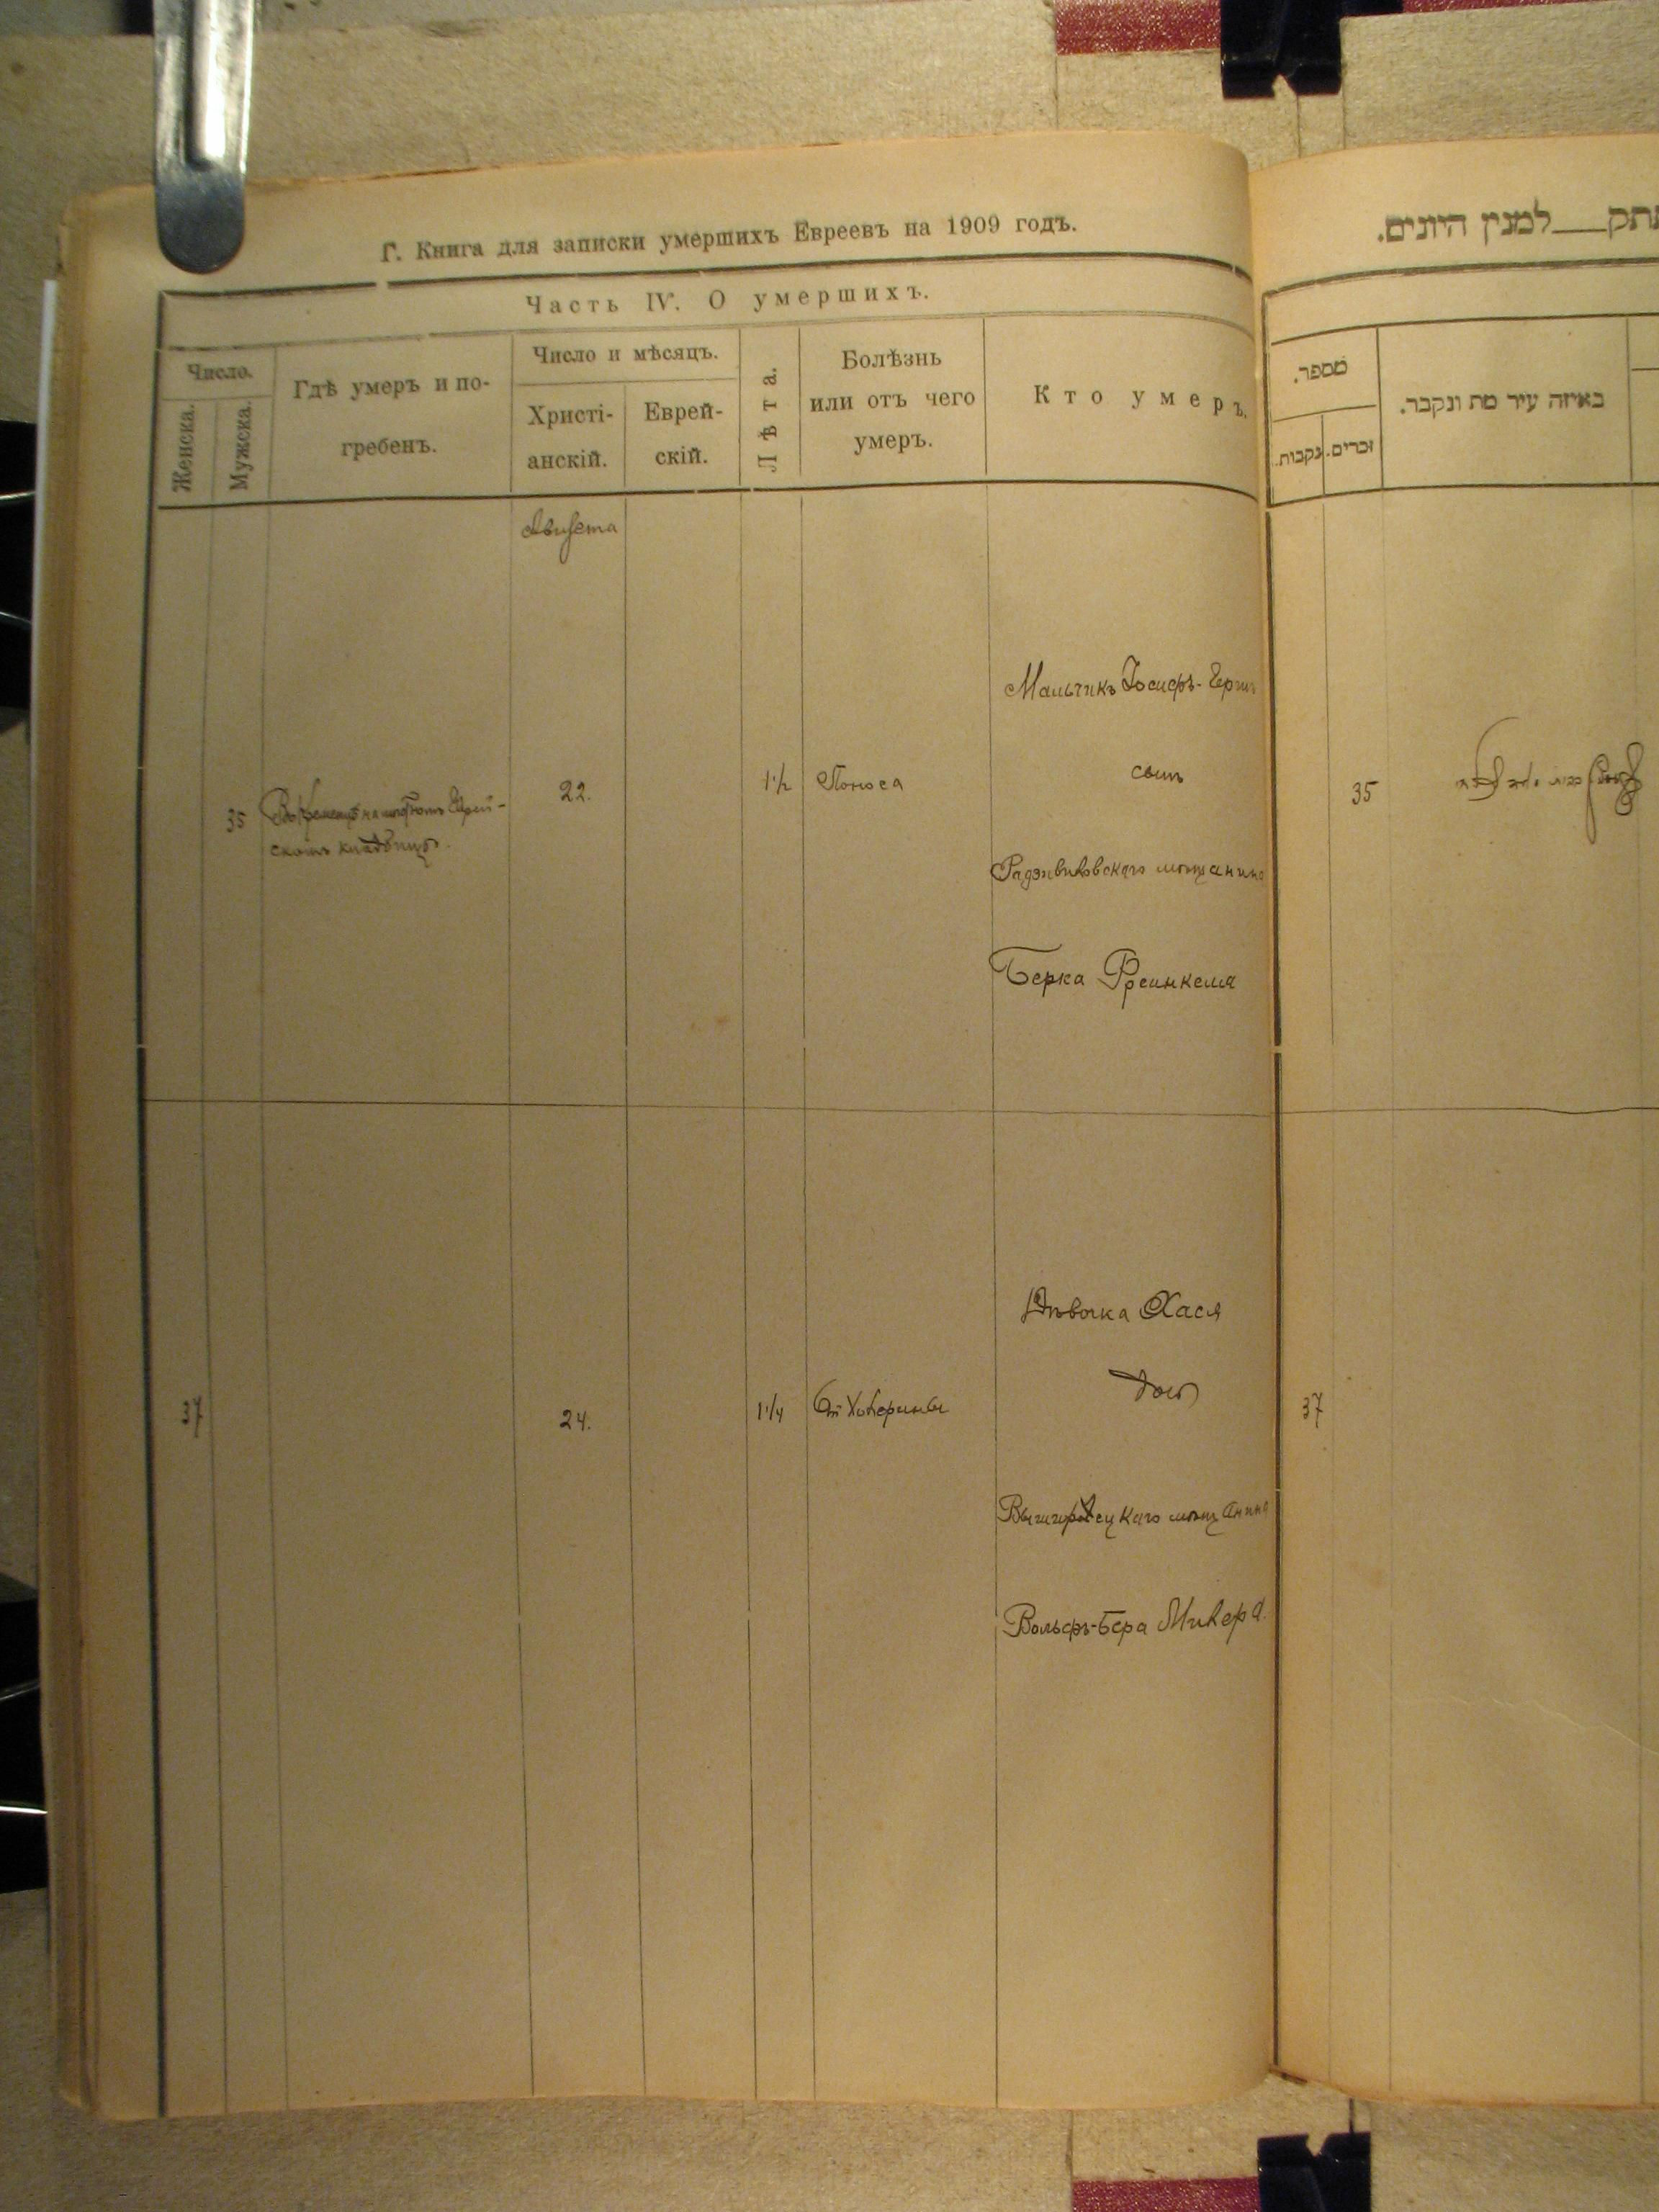 Г. Книга для записки умершихъ Евреевъ на 1909 годъ.
Часть IV. О умершихъ.
Число.
Женска.
Мужска.
Гдѣ умеръ и по-
гребенъ.
Число и мѣсяцъ.
Христі-
анскій.
Еврей-
скій.
Лѣта.
Болѣзнь
или отъ чего
умеръ.
Кто умеръ.
Августа
35
Въ Кременцѣ на мѣстномъ Еврей-
скомъ кладбищѣ.
22.
1½
Поноса
Мальчикъ Іосифъ-Герш
сынъ
Радзивиловскаго мѣщанина
Берка Френкеля
37
24.
1¼
От Холерины
Дѣвочка Хася
дочь
Вышгородецкаго мѣщанина
Вольфъ-Бера Милера.
למנין היונים.
מספר.
נקבות.
זכרים.
באיזה עיר מת ונקבר.
35
37